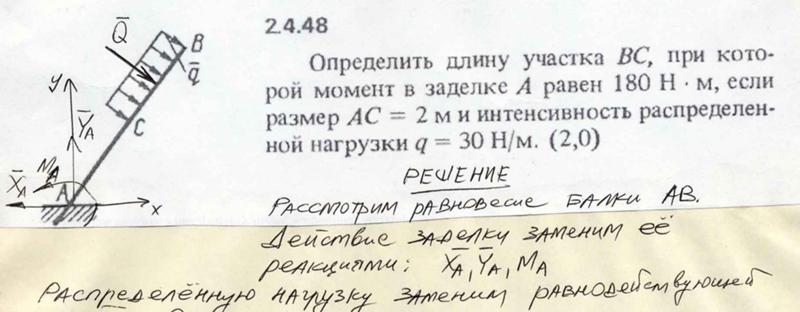 2.4.48
Определить длину участка BC, при кото-
рой момент в заделке A равен 180 Н · м, если
размер AC = 2 м и интенсивность распределен-
ной нагрузки q = 30 Н/м. (2,0)
Q̄
B
q̄
C
y
Y̅A
MA
X̅A
A
x
РЕШЕНИЕ
Рассмотрим равновесие балки АВ.
Действие заделку заменим её
реакциями: X̅A, Y̅A, MA
Распределённую нагрузку заменим равнодействующей